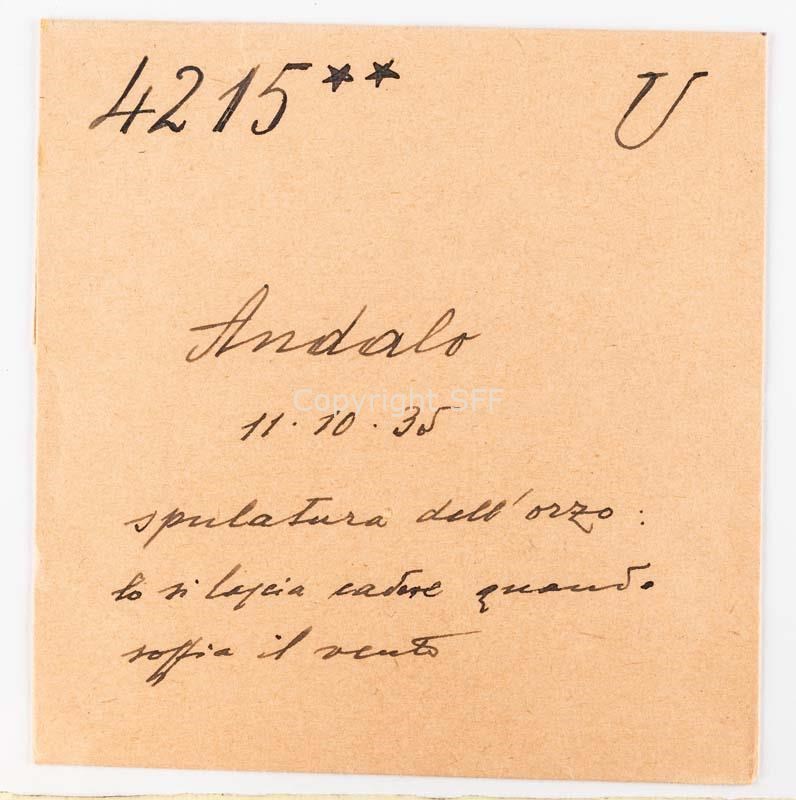 4215** U
Andalo
Copyright SFF
11.10.35
spulatura dell'orzo:
lo si lascia cadere quando
soffia il vento